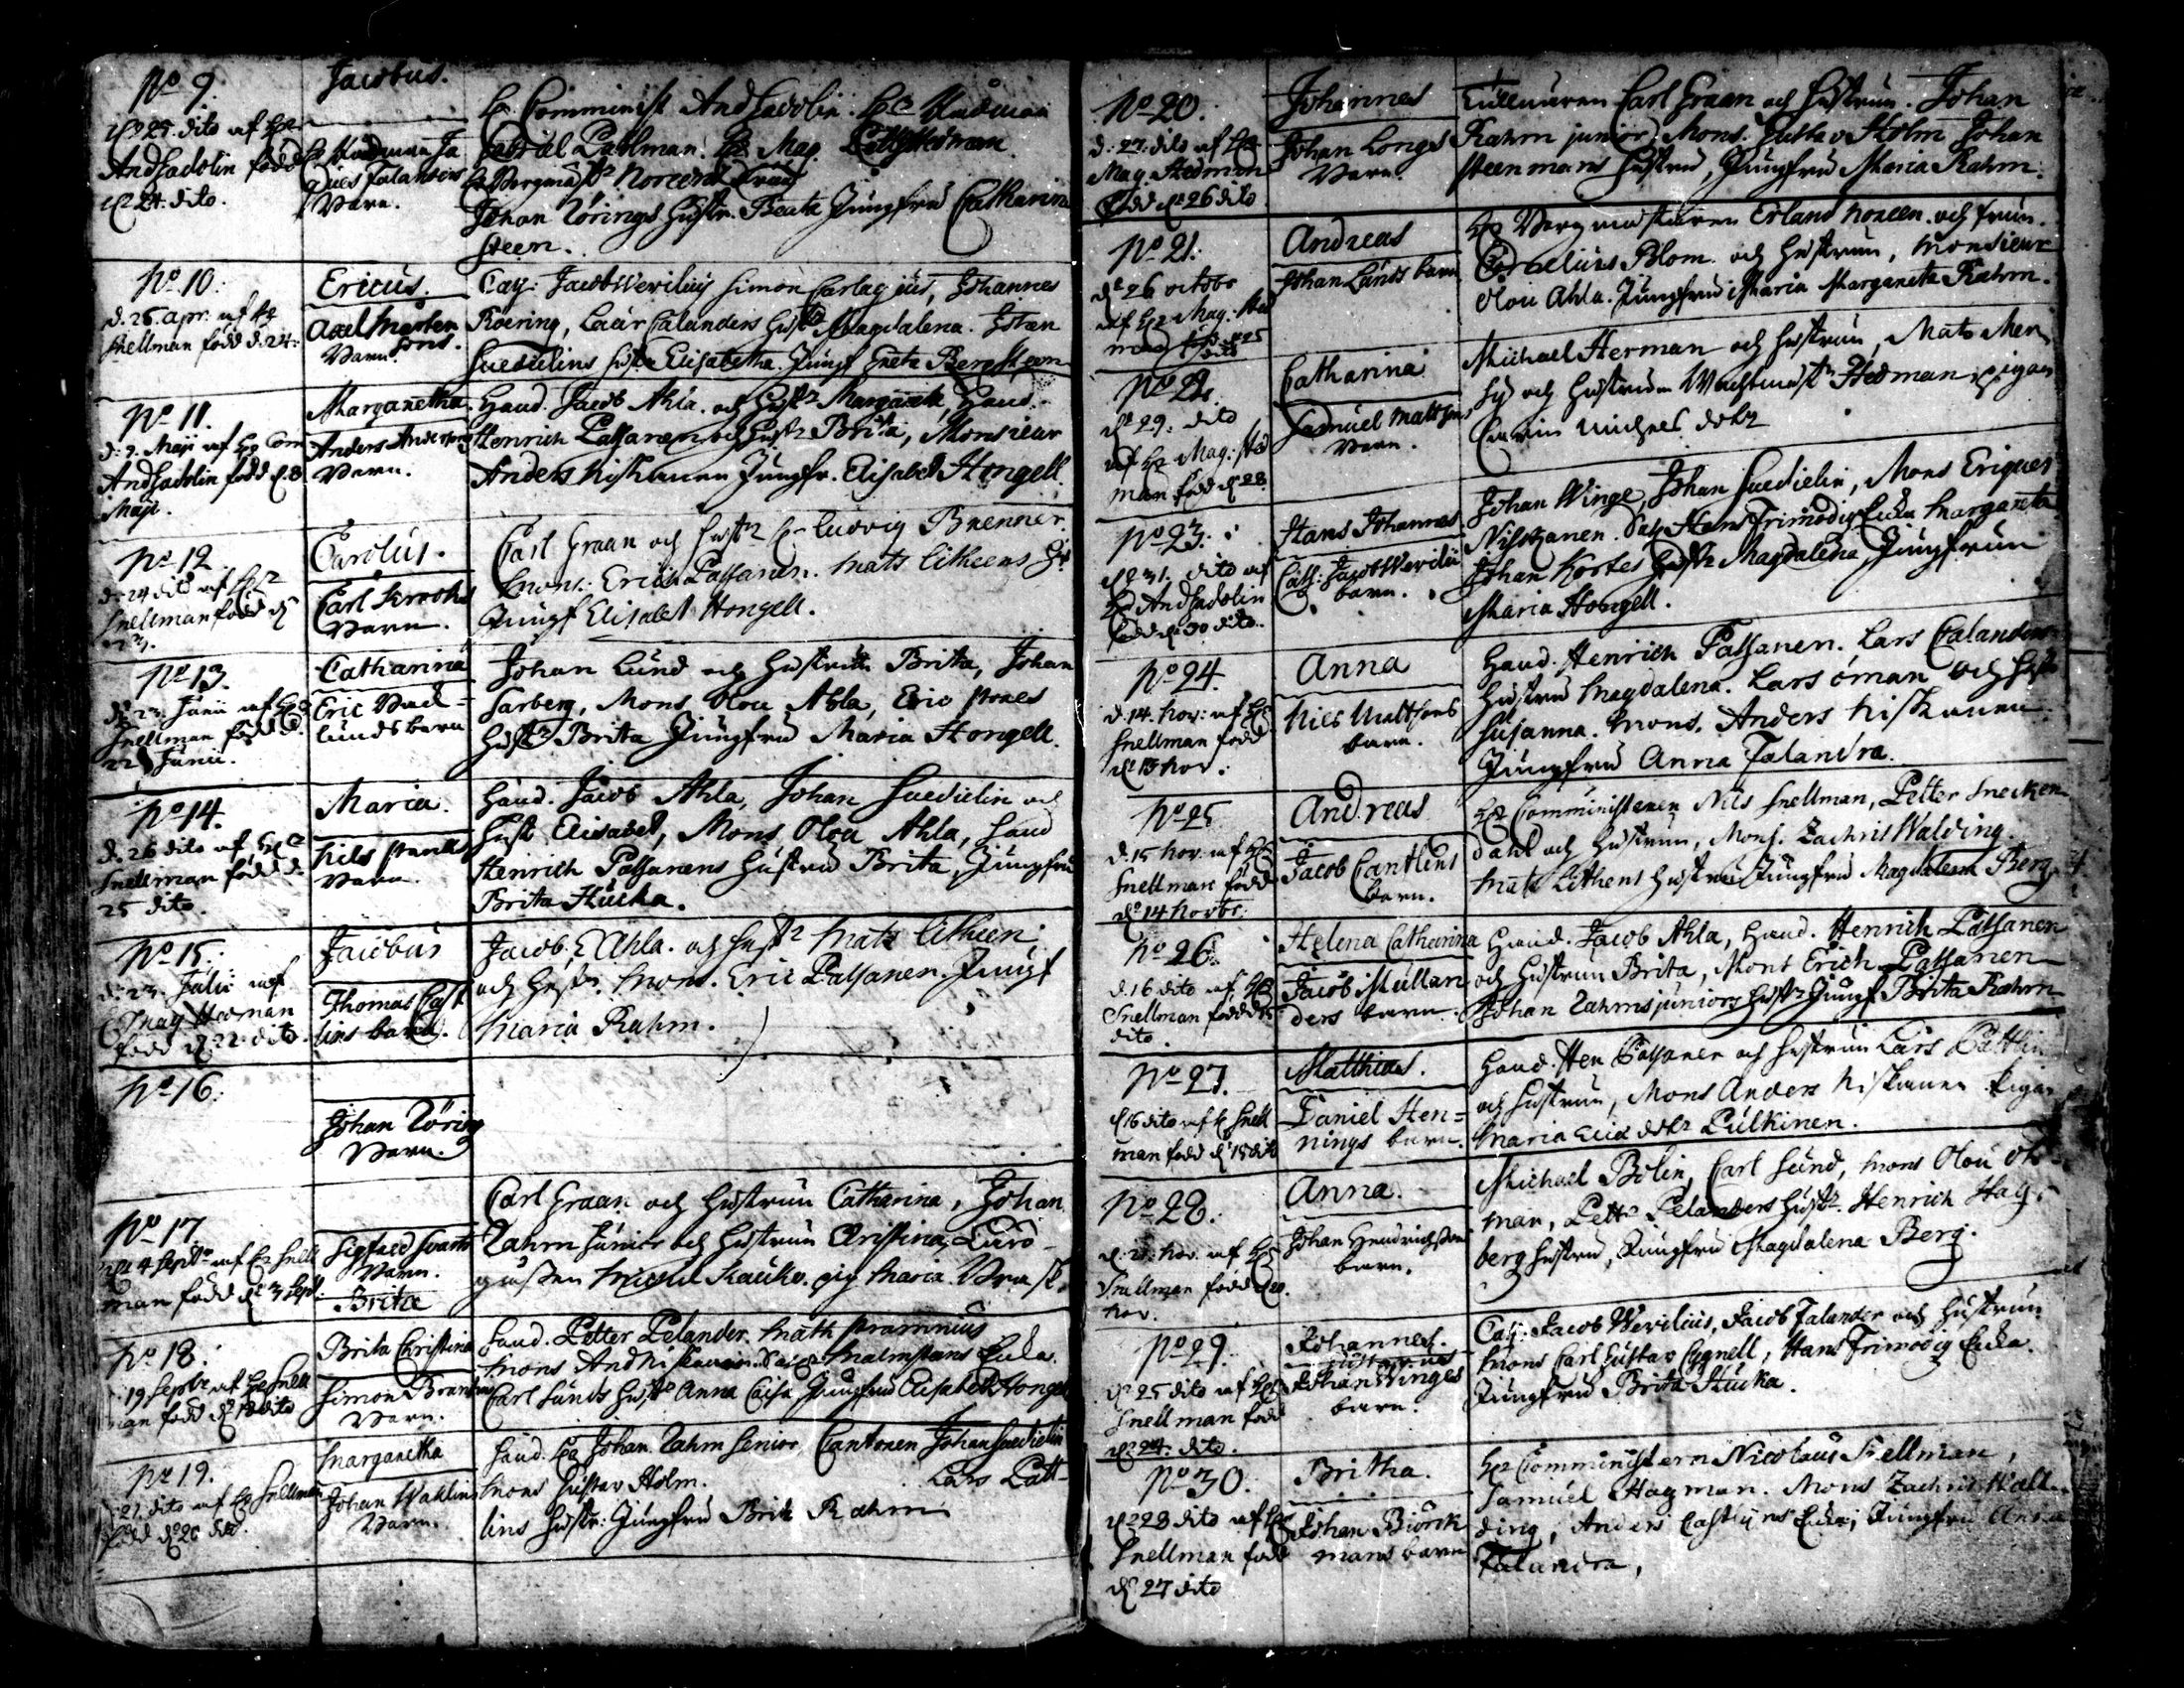 No 9.
d. 25. dito af H.
And. Sadolin född
d. 24. dito.
Jacobus.
H. Rådman Ja
Falanders
Barn.
H. Comminist And Sadolin. H. Rådman
Gabriel Pahlman. H. Mag. Hedman
H. Bergmäst. Noreens Fru
Johan Törings Hustr. Beata Jungfru Catharina
Steen.
No 10.
d. 26. apr. af H.
Snellman född d. 24.
Ericus.
Axel Mårten
sons.
Barn.
Cap. Jacob Werilius Simon Carlagius, Johannes
Roering, Laur Calanders Hust. Magdalena. Johan
Suedielins Hust. Elisabetha. Jungf Greta Bergsteen
No 11.
d. 9. Maji af H. Com
And Sadolin född d. 8
Maji.
Margaretha
Anders Andersons
Barn.
Hand. Jacob Ahla. och Hustr Margareta, Hand.
Henrich Passanen och Hustr Brita, Monsieur
Anders Niskanen Jungfr. Elisabet Hongell.
No 12.
d. 24 dito af H.
Snellman född d
23.
Carolus.
Carl Krooks
Barn.
Carl Graan och Hustr H. Ludvig Brenner.
Mons: Erich Passanen. Mats Litheens H.
Jungf Elisabet Hongell.
No 13.
d. 23. Junii af H.
Snellman född d.
22 Junii.
Catharina
Eric Bad-
lunds barn
Johan Lund och Hustrun Brita, Johan
Sarberg, Mons Olou Ahla, Eric
Hustr Brita Jungfru Maria Hongell.
No 14.
d. 26 dito af H.
Snellman född d.
25 dito.
Maria.
Nils
Barn.
Hand. Jacob Ahla, Johan Suedielin och
Hust Elisabet, Mons Olou Ahla, Hand
Henrich Passanens Hustru Brita, Jungfru
Brita Kuka.
No 15.
d. 23. Julii af
Mag Hedman
född d. 22. dito.
Jacobus
Thomas Cast
lins barn.
Jacob Ahla. och Hustr Mats Litheen
och Hustr. Mons. Eric Passanen. Jungf
Maria Rahm.
No 16.
Johan Töring
Barn.
No 17.
d. 4 Septr af H. Snell
man född d. 3 Sept.
Sigfred Svarts
Barn.
Brita
Carl Graan och Hustrun Catharina, Johan
Rahm Junior och Hustrun Christina,
Michel pig Maria
No 18.
19 Septbr af H. Snell
man född d 18 dito
Brita Christina
Simon
Barn.
Hand. Petter Pelander. Math
Mons And Niskanen. Malmstens Enka
Carl Lunds Hustr Anna Caisa Jungfru Elisabet Hongell
No 19.
21. dito af H. Snellman
född d 20 dito.
Margaretha
Johan Wahlins
Barn.
Hand. H. Johan Rahm Senior, Cantoren Johan Suedielin
Mons Gustav Holm. Lars Catt-
lins Hustr: Jungfru Brita Rahm
No 20.
d: 27. dito af H.
Mag. Hedman
född d. 26 dito
Johannes
Johan Longs
Barn.
Tullnären Carl Graan och Hustrun. Johan
Rahm junior, Mons. Gustav Holm Johan
Steenmans Hustru, Jungfru Maria Rahm.
No 21.
d. 26 octobr
af H. Mag: Hed
man född d 25
dito
Andreas
Johan Lunds barn
H. Bergmästaren Erland Noreen. och frun.
Cornelius Blom. och Hustrun, Monsieur
Olou Ahla. Jungfru Maria Margareta Rahm.
No 22.
d. 29. dito
af H. Mag: Hed
man född d 28
Catharina
Samuel Mattsons
Barn.
Michael Herman och Hustrun, Mats
och Hustrun Wachtmäst. Hedman, pigan
Carin Michels dotr
No 23.
d. 31. dito af
H. And Sadolin
född d. 30 dito.
Hans Johannes
Capt: Jacob Werilii
barn.
Johan Winge, Johan Suedielin, Mons Eriques
Niskanen. Hans Frimodigs Enka Margareta
Johan Kortes Hustr Magdalena, Jungfrun
Maria Hongell.
No 24.
d. 14. Nov: af H.
Snellman född
d. 13 Nov.
Anna
Nils Mattsons
barn.
Hand. Henrich Passanen. Lars Calanders
Hustru Magdalena. Lars öman och Hust
Susanna. Mons. Anders Niskanen.
Jungfru Anna Falandra.
No 25
d. 15 Nov. af H.
Snellman född
d. 14 Novbr.
Andreas
Jacob Cantlins
barn.
H. Comministeren Nils Snellman, Petter Snecken
dahl och Hustrun, Mons. Zachris Walding.
Mats Lithens Hustru Jungfru Magdalena Berg.
No 26.
d. 16 dito af H.
Snellman född d 15
dito.
Helena Catharina
Jacob Mullan
ders barn.
Hand. Jacob Ahla, Hand. Henrich Passanen
och Hustrun Brita, Mons Erich Passanen
Johan Rahms juniors Hustr Jungf Brita Rahm
No 27.
d 16 dito af H Snell
man född d. 15 dito
Matthias.
Daniel Hen-
nings barn.
Hand. Hen Passanen och Hustrun Lars Cattlin
och Hustrun, Mons Anders Niskanen Pigan
Maria Eric dotr Pulkinen.
No 28.
d. 21. Nov. af H.
Snellman född d 20.
Nov.
Anna.
Johan Hendrichsons
barn.
Michael Bolin, Carl Lund, Mons Olou
man, Pettr Pelanders Hustr. Henrich Hag-
berg Hustru, Jungfru Magdalena Berg.
No 29.
d. 25 dito af H.
Snellman född
d. 24. dito.
Johannes.
Gustavus
Johan Winges
barn.
Cap: Jacob Werilius, Jacob Falander och Hustrun
Mons Carl Gustav Cygnell, Hans Frimodig Enka.
Jungfru Brita Kuka.
No 30.
d. 28 dito af H.
Snellman född
d. 27 dito
Britha.
Johan Biörck
mans barn
H. Comministern Nicolaus Snellman,
Samuel Hagman. Mons Zachris Wall-
ding, Anders Castlijns Enka, Jungfru Anna
Falandra,